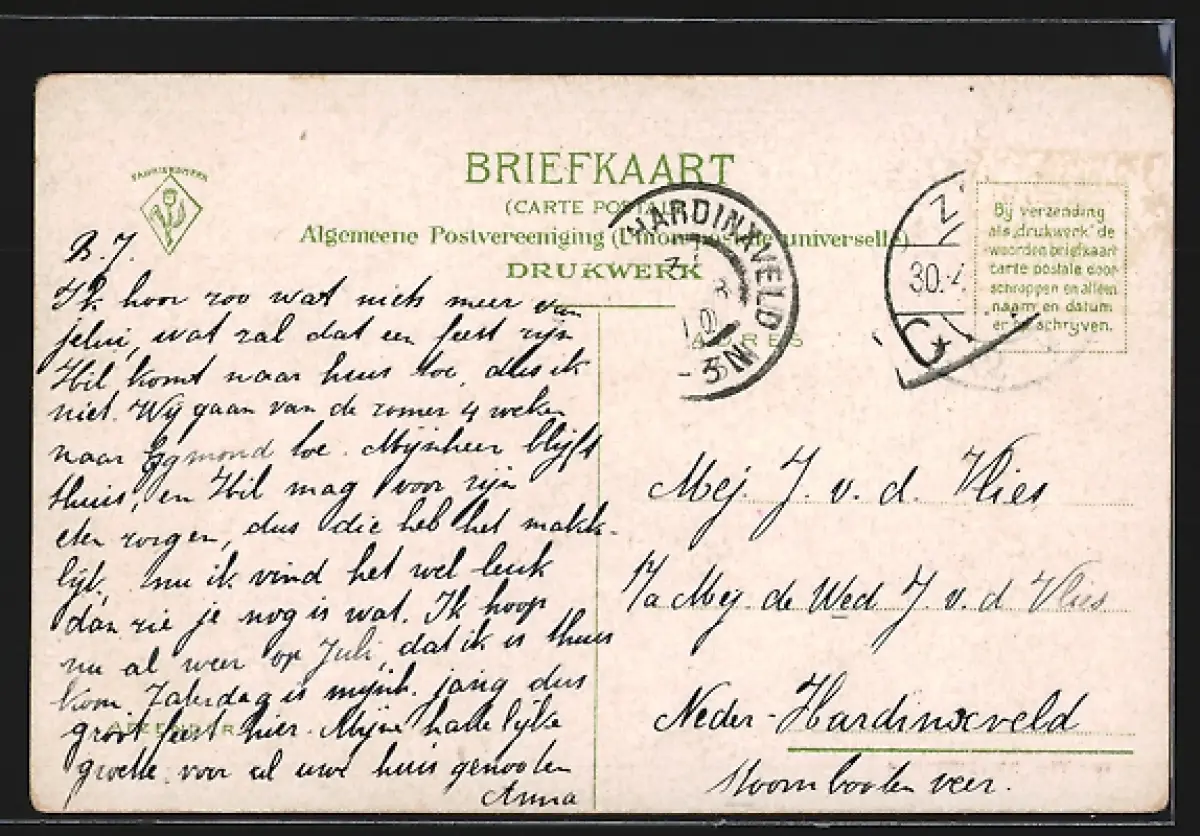 FABRIEKSMERK
BRIEFKAART
(CARTE POSTALE)
Algemeene Postvereeniging (Union postale universelle)
DRUKWERK
ADRES
Bij verzending
als "drukwerk" de
woorden briefkaart
carte postale door-
schrappen en alléén
naam en datum
er by schryven.
HARDINXVELD
3 N
30.
B. J.
Ik hoor zoo wat niets meer van
jelui, wat zal dat een feest zijn
Hil komt naar huis toe, dus ik
niet. Wij gaan van de zomer 4 weken
naar Egmond toe. Mijnheer blijft
thuis, en Hil mag voor zijn
eten zorgen, dus die heb het makke-
lijk. nu ik vind het wel leuk
dan zie je nog is wat. Ik hoop
nu al weer op Juli, dat ik is thuis
kom. Zaterdag is mijnh. jarig dus
groot feest hier. Mijne hartelijke
groete voor al uwe huisgenooten
Anna
AFZENDER
Mej. J. v. d. Vlies
p/a Mej. de Wed J. v. d Vlies
Neder-Hardinxveld
Stoombooten veer.